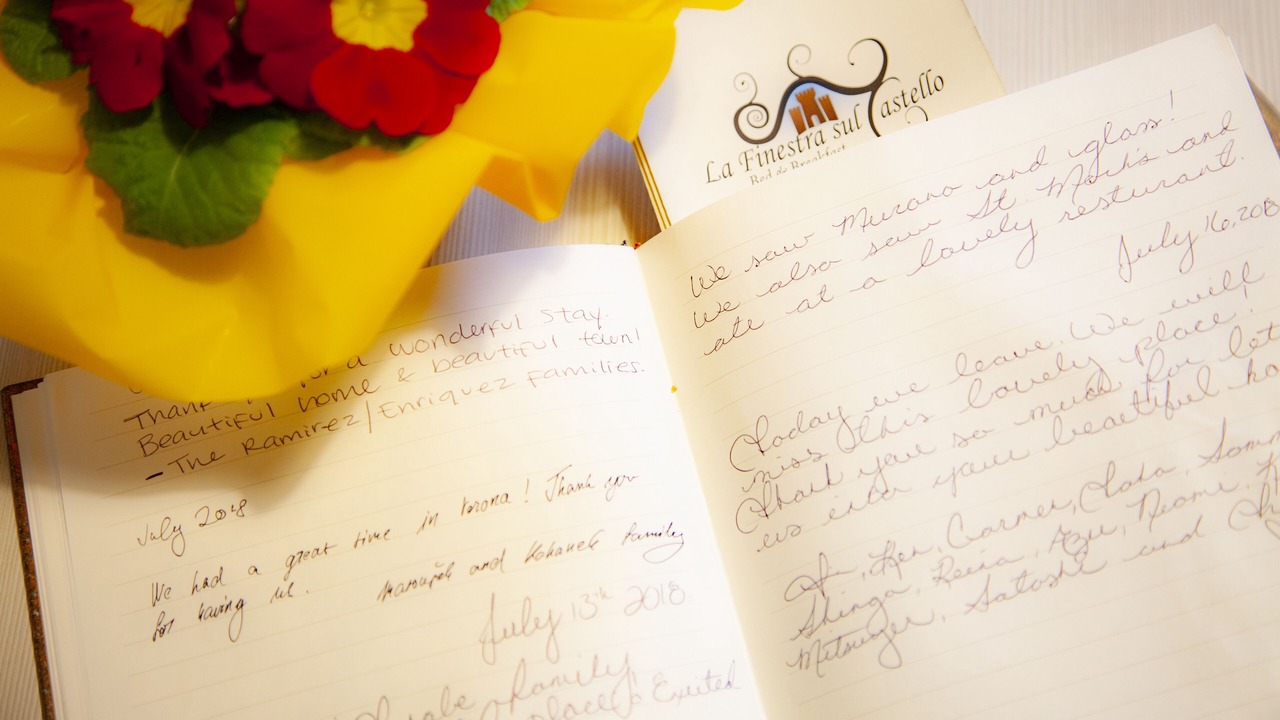 La Finestra sul Castello
Bed & Breakfast
for a wonderful stay.
Thank beautiful town!
Beautiful home &
- The Ramirez/Enriquez Families.
July 2018
We had a great time in Verona! Thank you
for having us. and family
July 13th 2018
Family
place Excited
We saw Murano and glass!
We also saw St. Mark's and
ate at a lovely resturant.
July 16, 20
Today we leave. We will
miss this lovely place!
Thank you so much for let
us enter your beautiful ho
Ken, Carmen,
Shinga, Reina,
Satoshi and